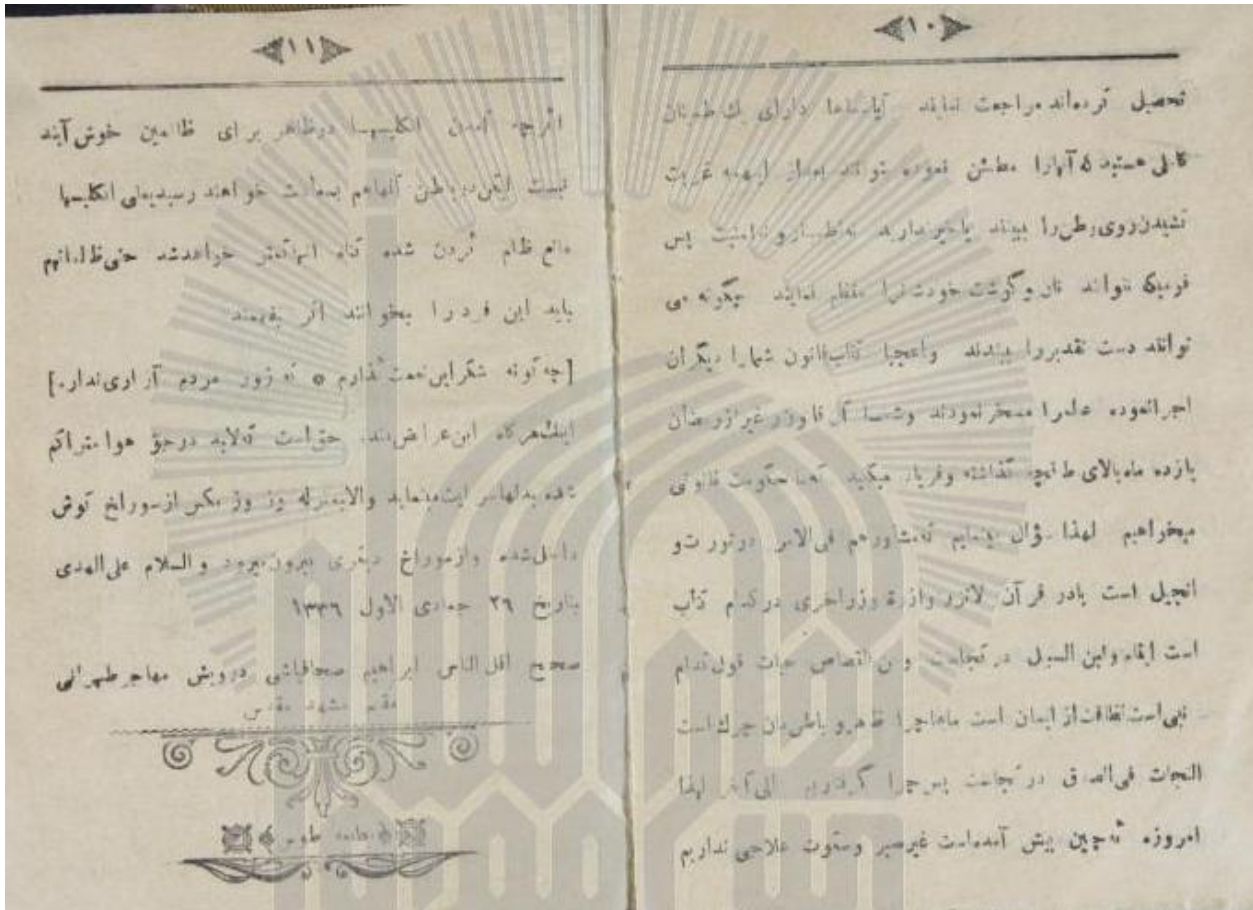 ﴿۱۰﴾
تحصیل کرده‌اند مراجعت نمایند آیا شماها دارای یک اطمینان
کاملی هستید که آنهارا مطمئن نموده بتواند بعداز اینهمه غربت
کشیدن روی وطن را ببینند یا خیر ندارید نه نظمیه و نه امنیت پس
قومیکه نتواند نان و گوشت خودشانرا منظم نمایند چگونه می
توانند دست تقدیررا ببندند واعجبا کتاب قانون شمارا دیگران
اجرا نموده عالمرا مسخر نمودند وشما آن را در غیر از رمضان
یازده ماه بالای طاقچه گذاشته وفریاد میکنید که ما حکومت قانونی
میخواهیم لهذا سؤال مینمایم که شاورهم فی الامر در تورات و
انجیل است یا در قرآن لاتزر وازرة وزر اخری در کدام کتاب
است ایفاء وابن السبیل در کجاست و فی القصاص حیات قول کدام
نبی است نظافت از ایمان است ماها چرا ظاهر و باطن‌مان چرک است
النجات فی الصدق در کجاست پس چرا گرفتاریم الی آخر لهذا
امروزه که چنین پیش آمده است غیر صبر وسکوت علاجی نداریم
﴿۱۱﴾
اگرچه آمدن انگلیسها در ظاهر برای ظالمین خوش آیند
نیست لیکن در باطن آنها هم بسعادت خواهند رسید یعنی انگلیسها
مانع ظلم کردن شده گناه آنها کمتر خواهد شد حتی ظالمان هم
باید این فرد را بخوانند اگر بفهمند
[چگونه شکر این نعمت گذارم * که زور مردم آزاری ندارم]
اینک هرگاه این عرایض بنده حق است که لابد در جو هوا متراکم
شده بدلها سرایت مینماید والا بمنزله وز وز مگس از سوراخ گوش
داخل شده واز سوراخ دیگری بیرون میرود والسلام علی الهدی
بتاریخ ۲۹ جمادی الاول ۱۳۳۶
صحیح اقل الناس ابراهیم صحافباشی درویش مهاجر طهرانی
مقیم مشهد مقدس
مطبعه طوس